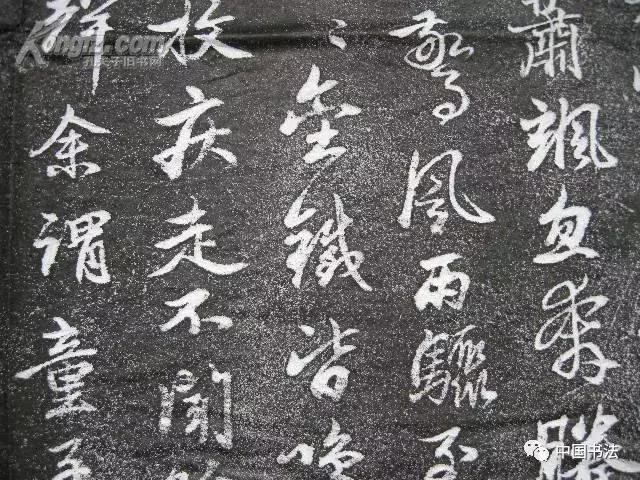 蕭颯忽奔騰
驚風雨驟至
〻金鐵皆鳴
枚疾走不聞
聲余謂童子
Kongfz.com
孔夫子旧书网
中国书法